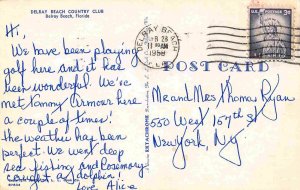 DELRAY BEACH COUNTRY CLUB
Delray Beach, Florida
Hi,
We have been playing
golf here and it has
been wonderful. We've
met Tommy Armour here
a couple of times!
the weather has been
perfect. We went deep
sea fishing and Rosemary
caught a dolphin!
Love Alice
DELRAY BEACH
FEB 28
11 AM
1958
FLA.
POST CARD
Mr and Mrs Thomas Ryan
630 West 157th st
New York, NY